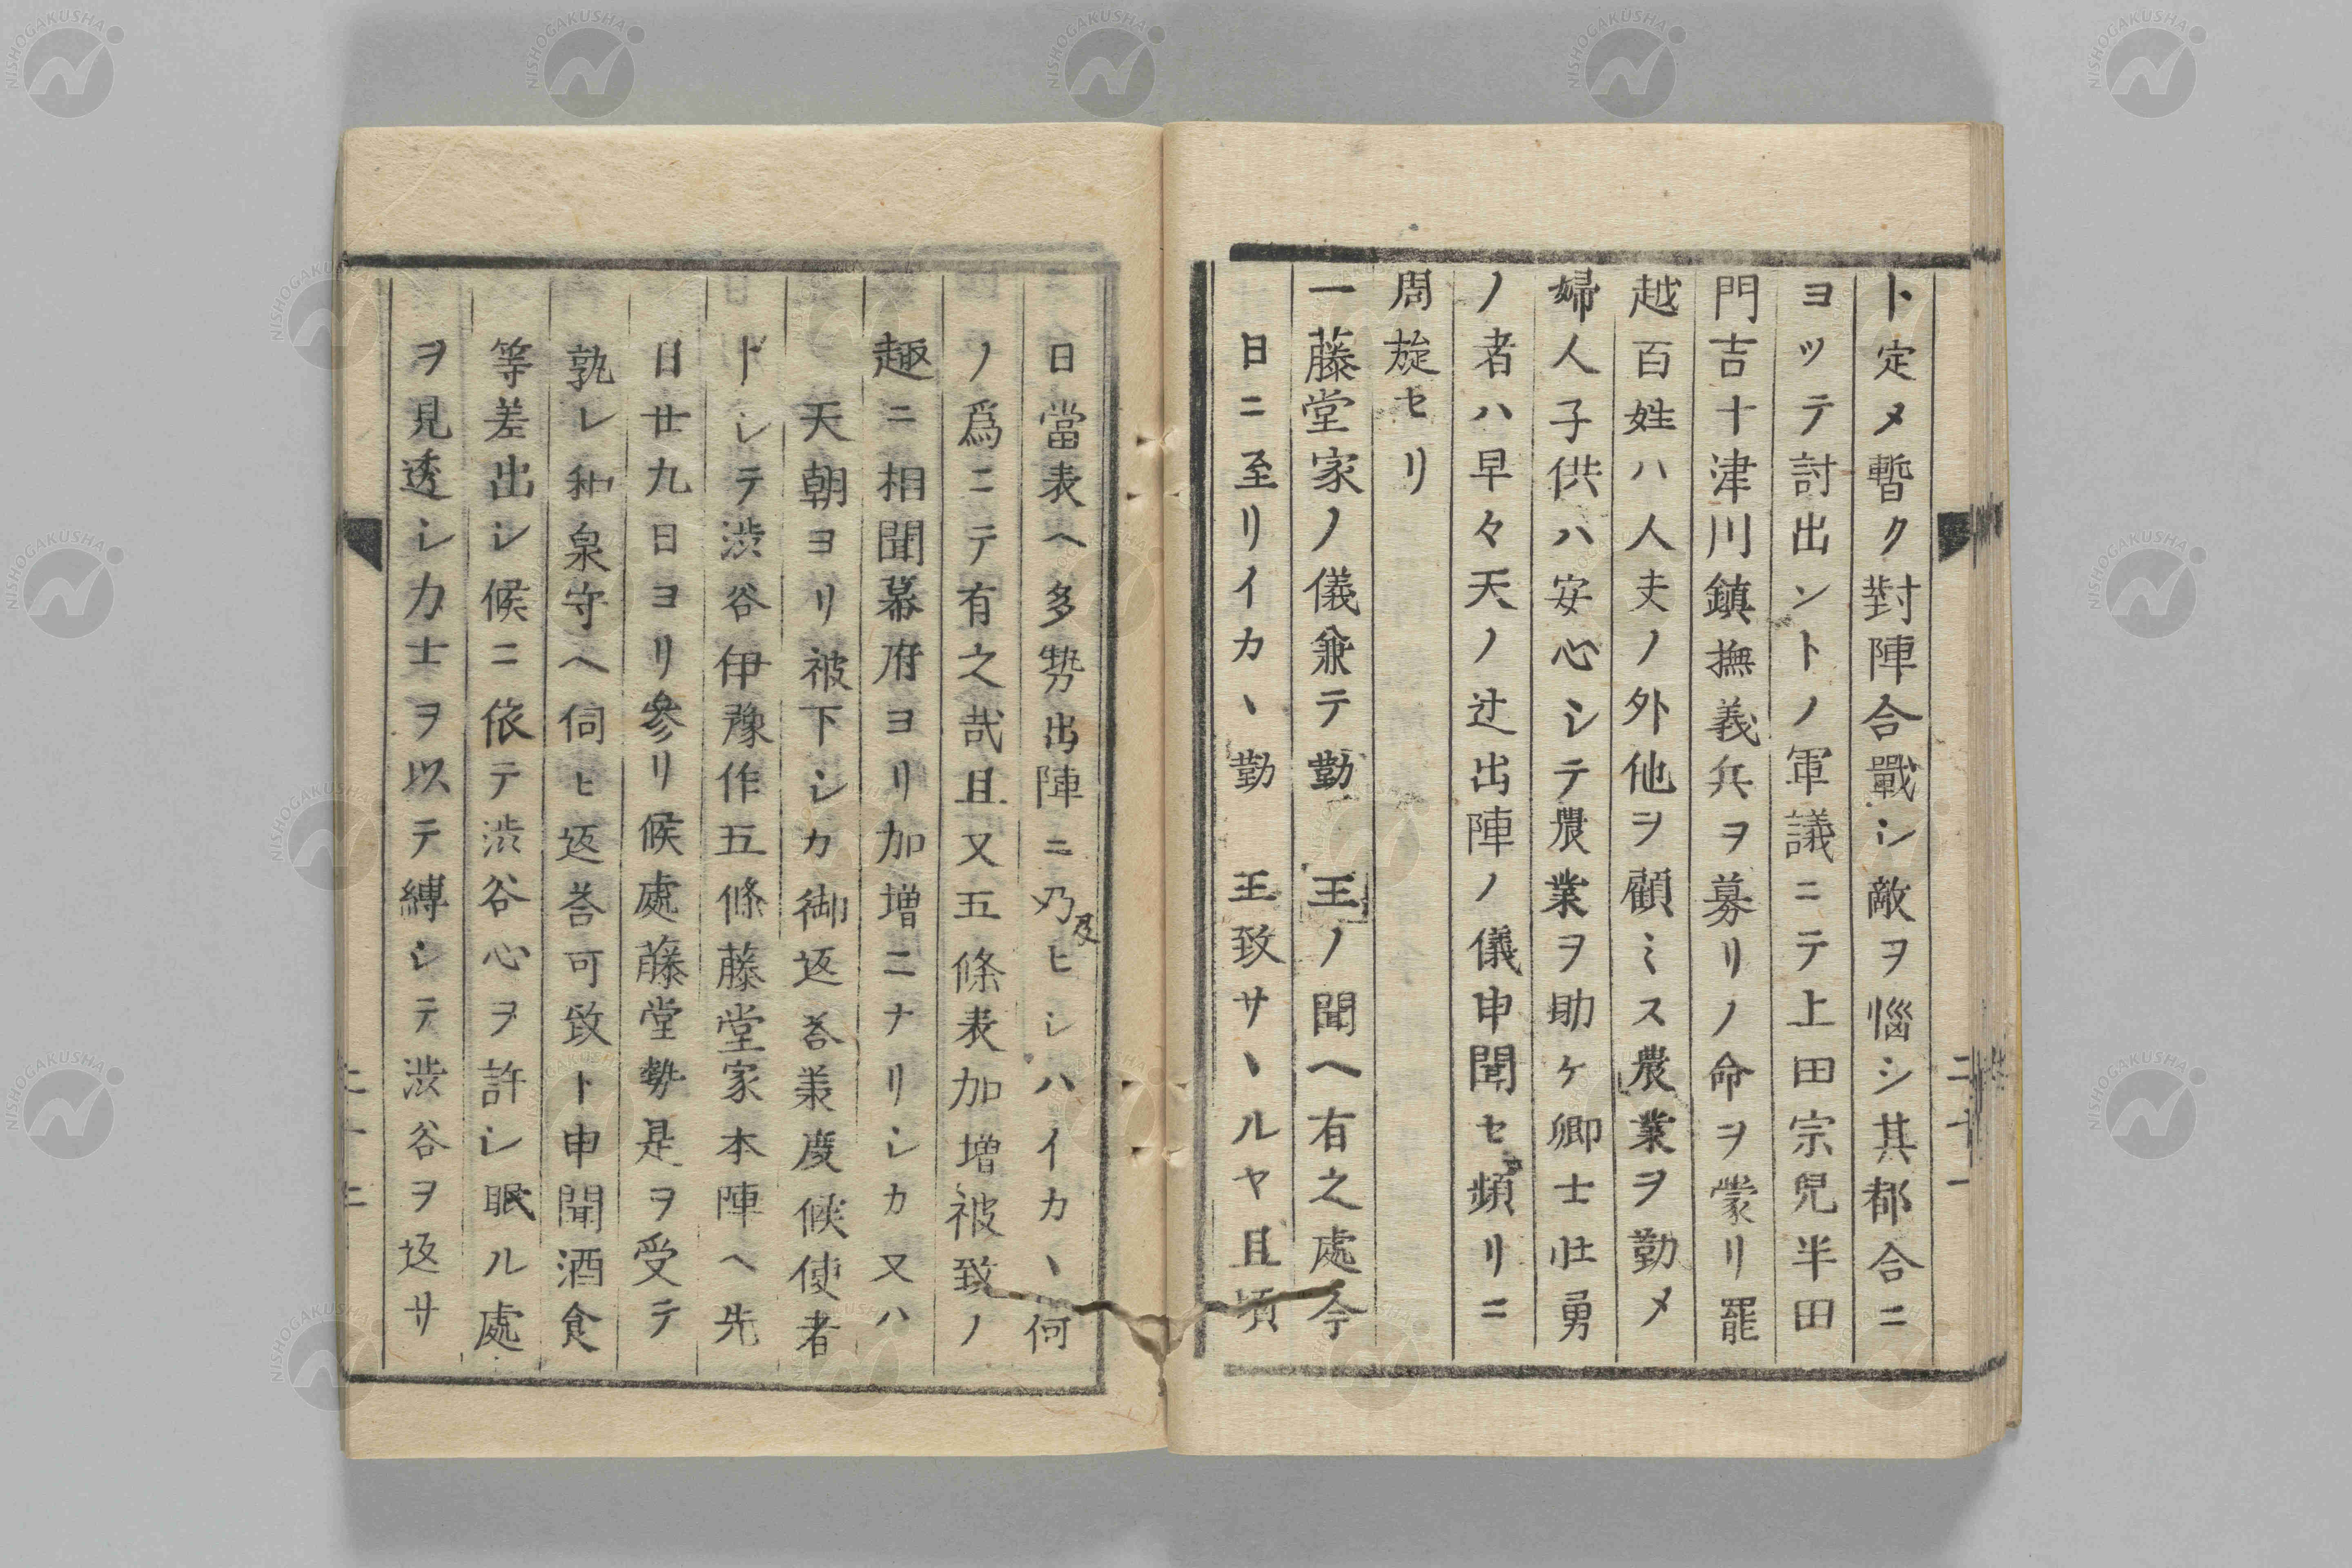 ト定メ暫ク對陣合戰シ敵ヲ惱シ其都合ニ
ヨツテ討出ントノ軍議ニテ上田宗兒半田
門吉十津川鎮撫義兵ヲ募リノ命ヲ蒙リ罷
越百姓ハ人夫ノ外他ヲ顧ミス農業ヲ勤メ
婦人子供ハ安心シテ農業ヲ助ケ郷士壮勇
ノ者ハ早々天ノ辻出陣ノ儀申聞セ頻リニ
周旋セリ
一藤堂家ノ儀兼テ勤 王ノ聞ヘ有之處今
日ニ至リイカヽ勤 王致サヽルヤ且頃
二十一
日當表ヘ多勢出陣ニ乃ヒシハイカヽ何
及
ノ爲ニテ有之哉且又五條表加増被致ノ
趣ニ相聞幕府ヨリ加増ニナリシカ又ハ
天朝ヨリ被下シカ御返荅兼度候使者
トシテ渋谷伊豫作五條藤堂家本陣ヘ先
日廿九日ヨリ參リ候處藤堂勢是ヲ受テ
孰レ和泉守ヘ伺ヒ返荅可致ト申聞酒食
等差出シ候ニ依テ渋谷心ヲ許シ眠ル處
ヲ見透シ力士ヲ以テ縛シテ渋谷ヲ返サ
NISHOGAKUSHA